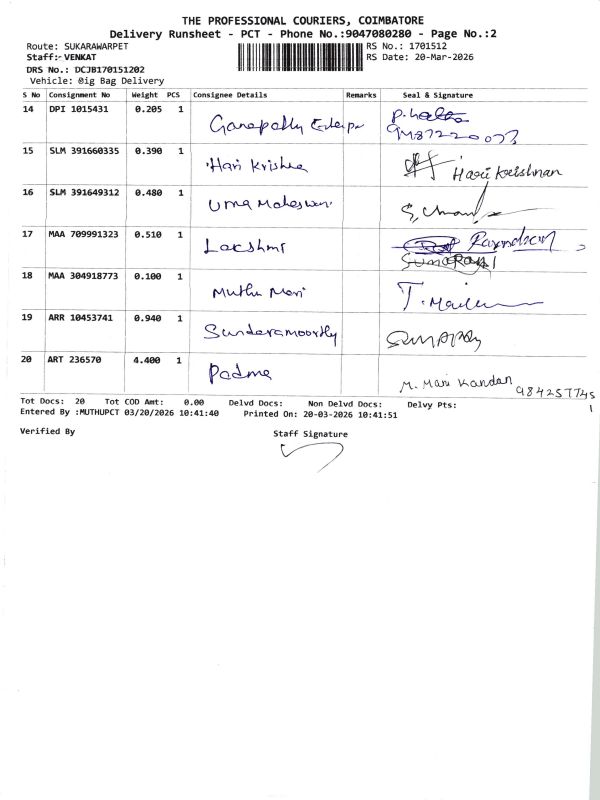 THE PROFESSIONAL COURIERS, COIMBATORE
Delivery Runsheet - PCT - Phone No.:9047080280 - Page No.:2
Route: SUKARAWARPET RS No.: 1701512
Staff:- VENKAT RS Date: 20-Mar-2026
DRS No.: DCJB170151202
Vehicle: @ig Bag Delivery
S No Consignment No Weight PCS Consignee Details Remarks Seal & Signature
14 DPI 1015431 0.205 1 Ganapathy
15 SLM 391660335 0.390 1 Hari Krishna Hari Krishnan
16 SLM 391649312 0.480 1 Uma Maheswari
17 MAA 709991323 0.510 1 Lakshmi
18 MAA 304918773 0.100 1 Muthu Mari
19 ARR 10453741 0.940 1 Sundaramoorthy
20 ART 236570 4.400 1 Padma M. Mari Kandan
Tot Docs: 20 Tot COD Amt: 0.00 Delvd Docs: Non Delvd Docs: Delvy Pts:
Entered By :MUTHUPCT 03/20/2026 10:41:40 Printed On: 20-03-2026 10:41:51
Verified By Staff Signature